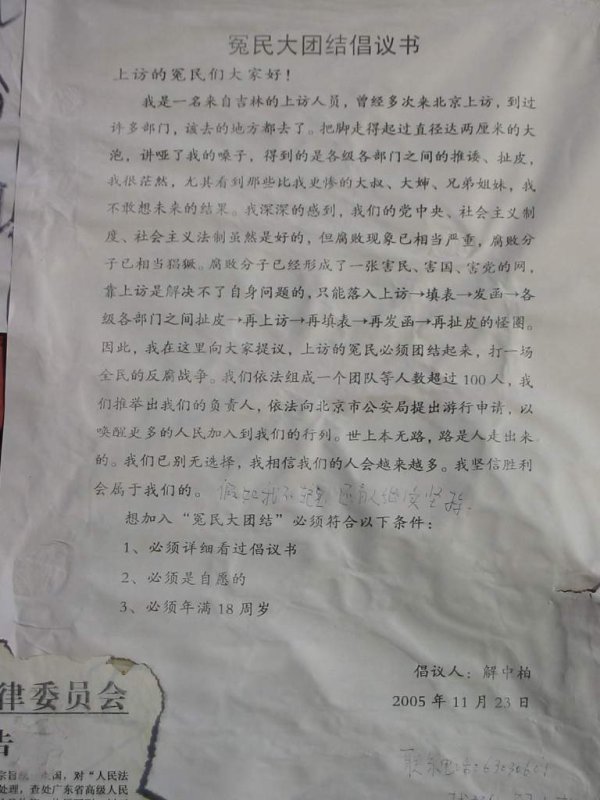 冤民大团结倡议书
上访的冤民们大家好！
我是一名来自吉林的上访人员，曾经多次来北京上访，到过
许多部门，该去的地方都去了。把脚走得起过直径达两厘米的大
泡，讲哑了我的嗓子，得到的是各级各部门之间的推诿、扯皮，
我很茫然，尤其看到那些比我更惨的大叔、大婶、兄弟姐妹，我
不敢想未来的结果。我深深的感到，我们的党中央、社会主义制
度、社会主义法制虽然是好的，但腐败现象已相当严重，腐败分
子已相当猖獗。腐败分子已经形成了一张害民、害国、害党的网，
靠上访是解决不了自身问题的，只能落入上访→填表→发函→各
级各部门之间扯皮→再上访→再填表→再发函→再扯皮的怪圈。
因此，我在这里向大家提议，上访的冤民必须团结起来，打一场
全民的反腐战争。我们依法组成一个团队等人数超过 100 人，我
们推举出我们的负责人，依法向北京市公安局提出游行申请，以
唤醒更多的人民加入到我们的行列。世上本无路，路是人走出来
的。我们已别无选择，我相信我们的人会越来越多。我坚信胜利
会属于我们的。
想加入“冤民大团结”必须符合以下条件：
1、必须详细看过倡议书
2、必须是自愿的
3、必须年满 18 周岁
倡议人：解中柏
2005 年 11 月 23 日
律委员会
告
国，对“人民法
处理，查处广东省高级人民